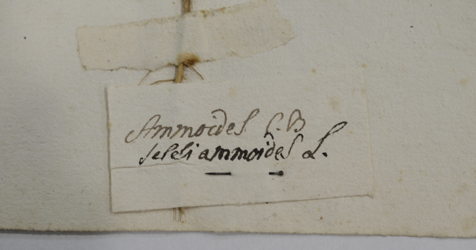 Ammoides C. B
seseli ammoides L.